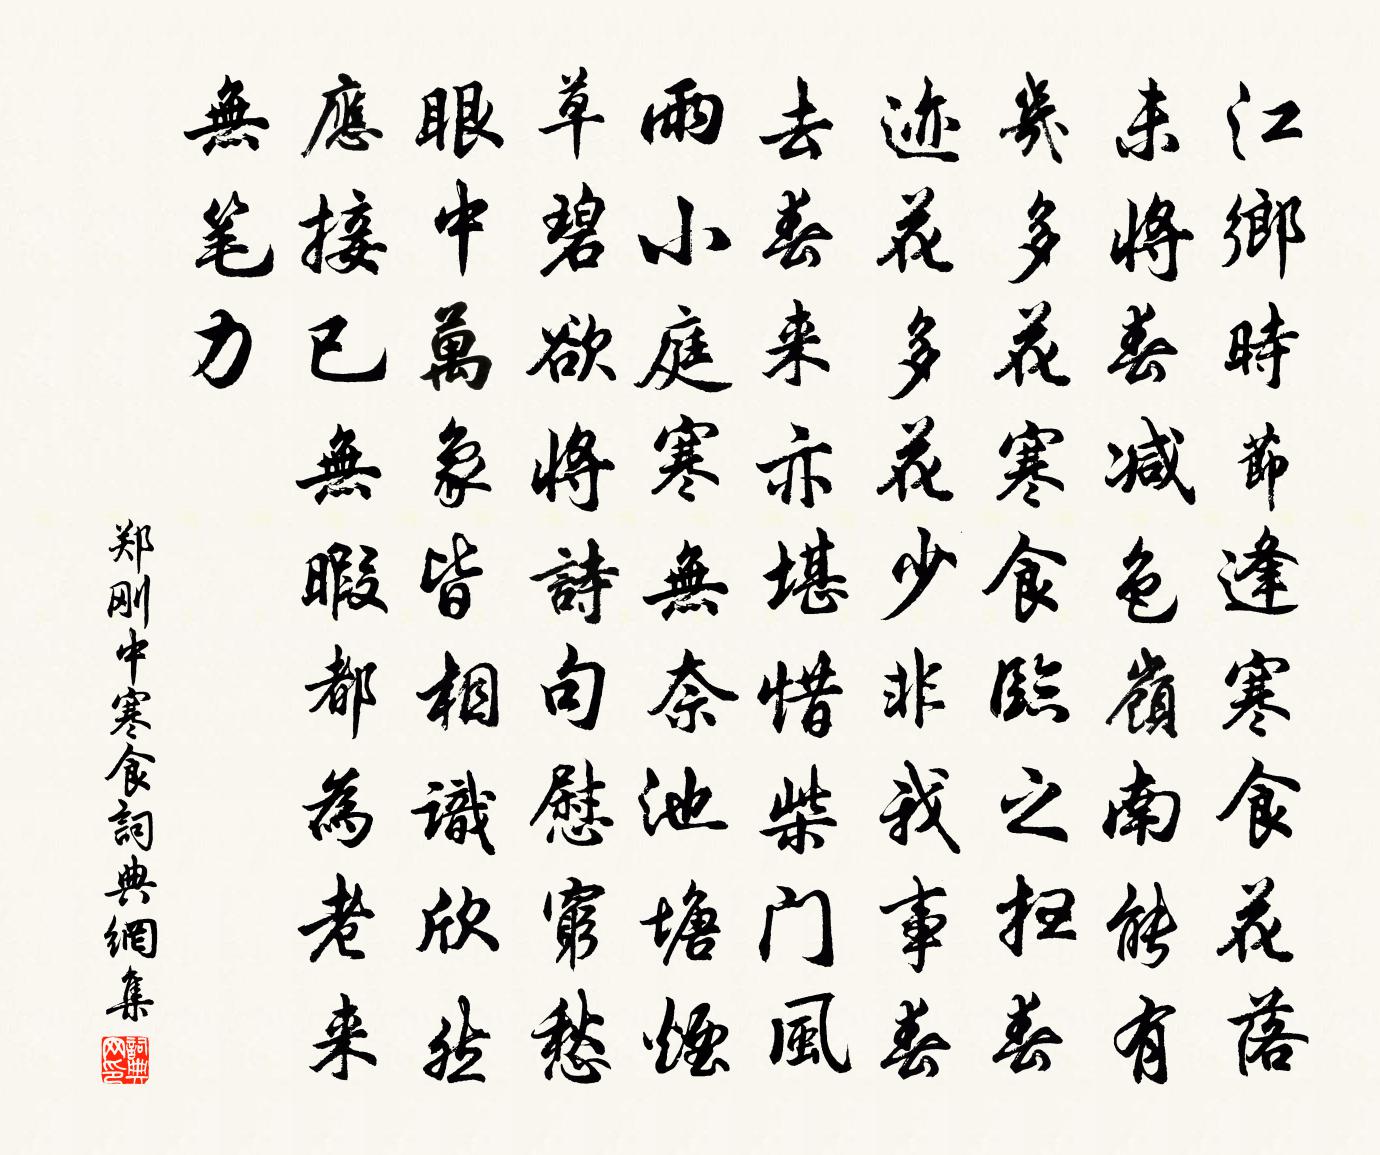 江鄉時節逢寒食花落
未將春減色嶺南能有
幾多花寒食臨之扫春
迹花多花少非我事春
去春来亦堪惜柴门風
雨小庭寒無奈池塘煙
草碧欲將詩句慰窮愁
眼中萬象皆相識欣然
應接已無暇都為老来
無笔力
郑刚中寒食詞典網集
詞典网印